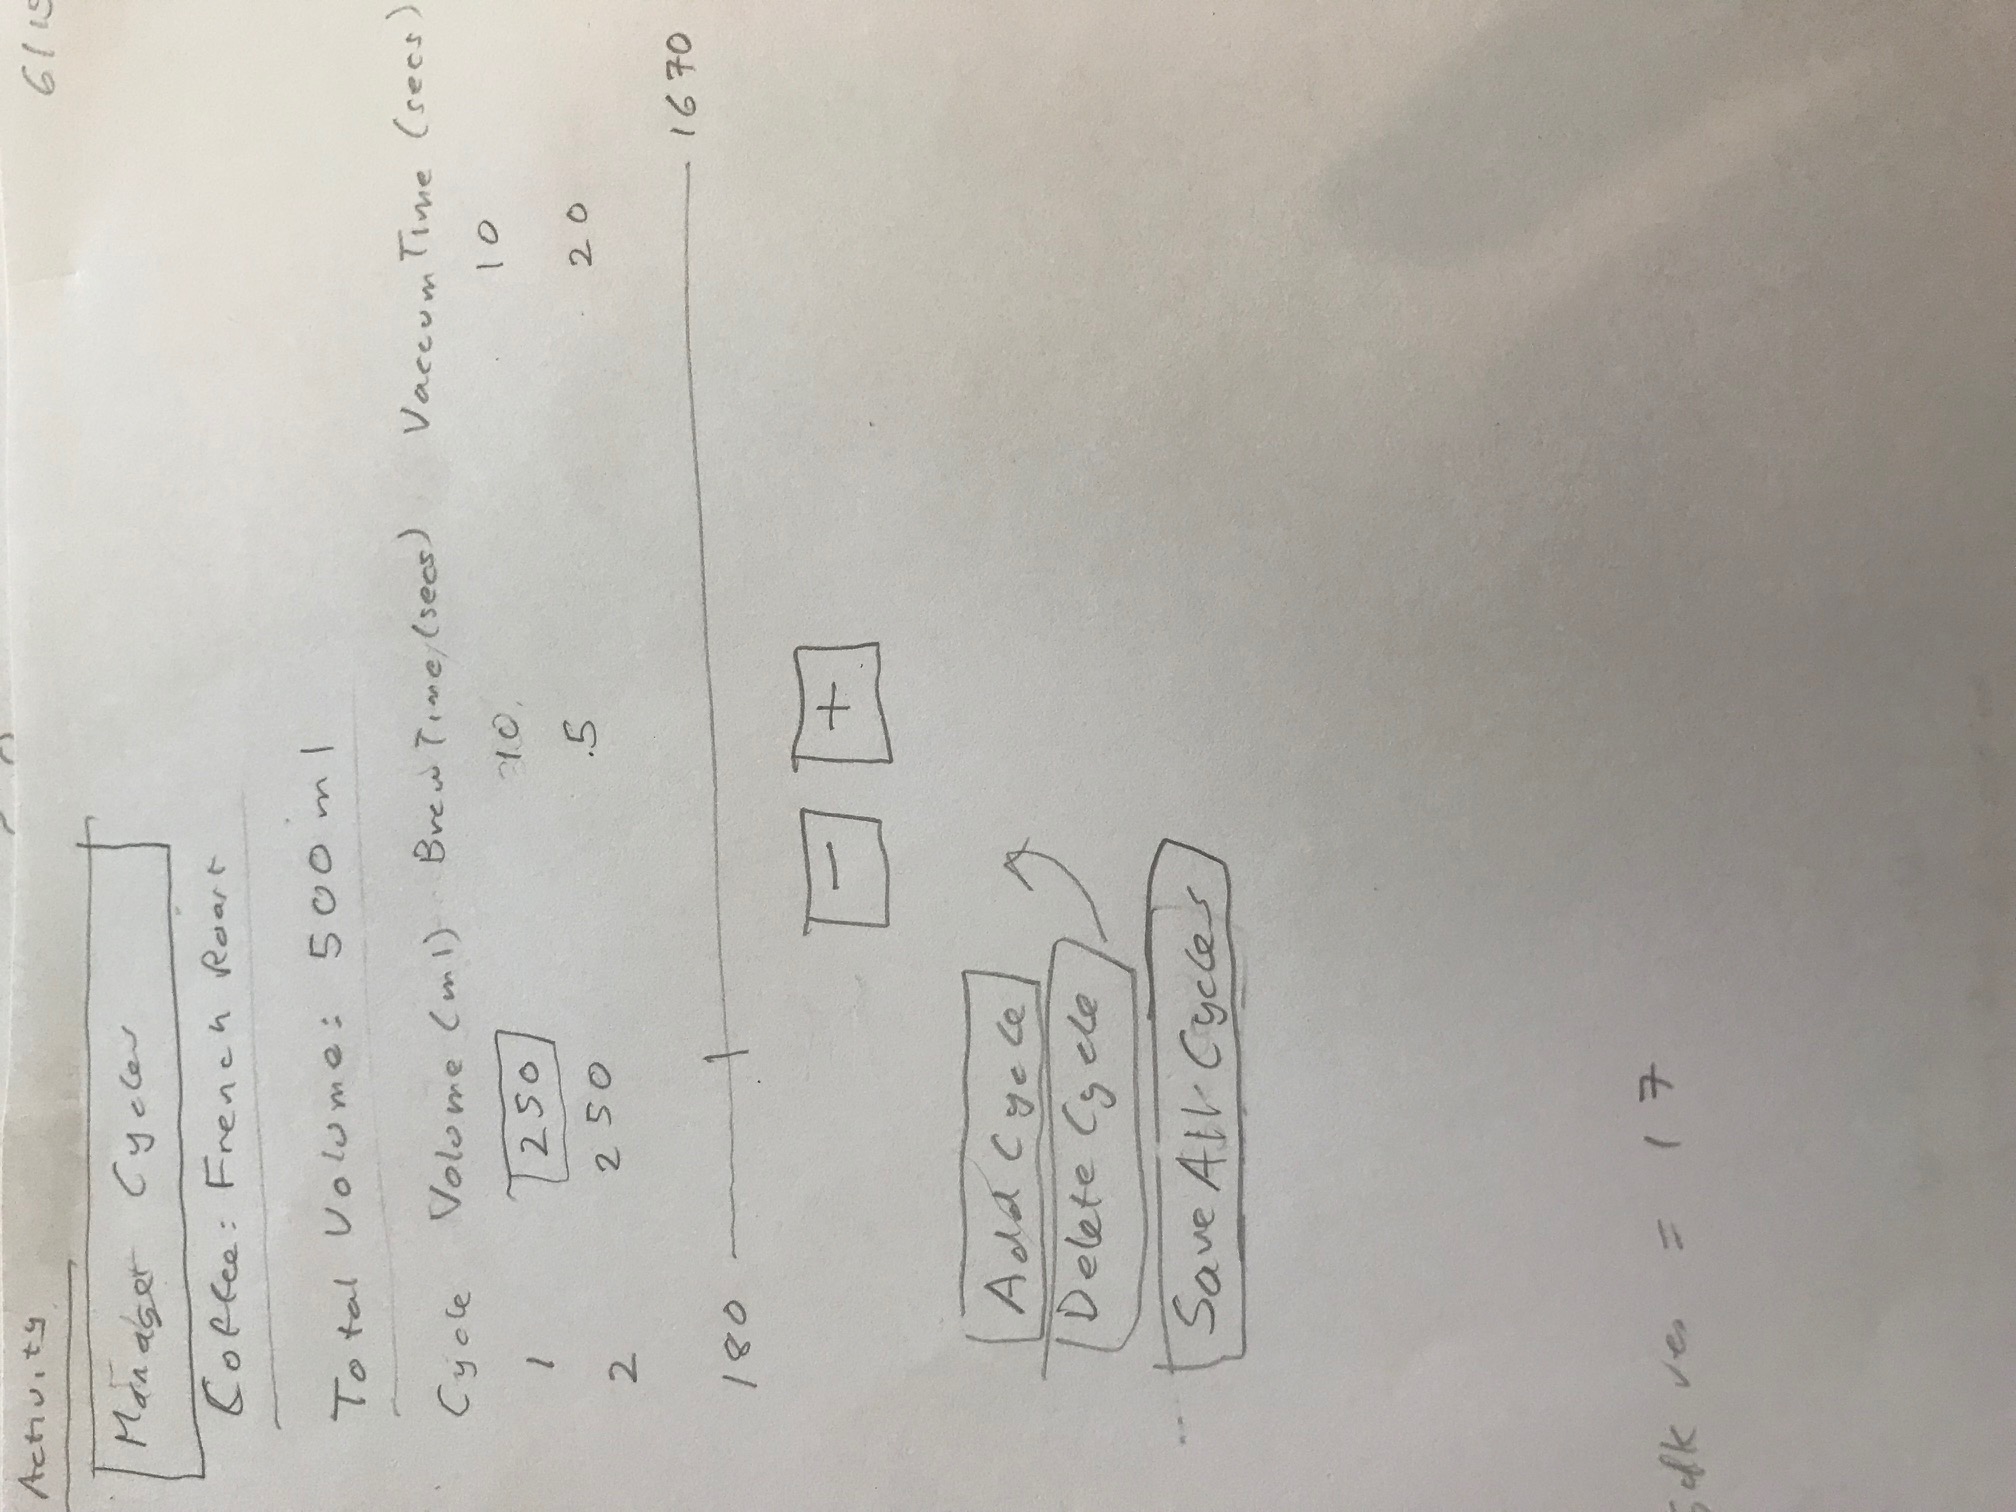 Activity 6/15
Manager Cycles
Coffee: French Roast
Total Volume: 500 ml
Cycle Volume (ml) Brew Time (secs) Vaccum Time (secs)
1 250 10 10
2 250 5 20
180 1670
- +
Add Cycle
Delete Cycle
Save All Cycles
= 17